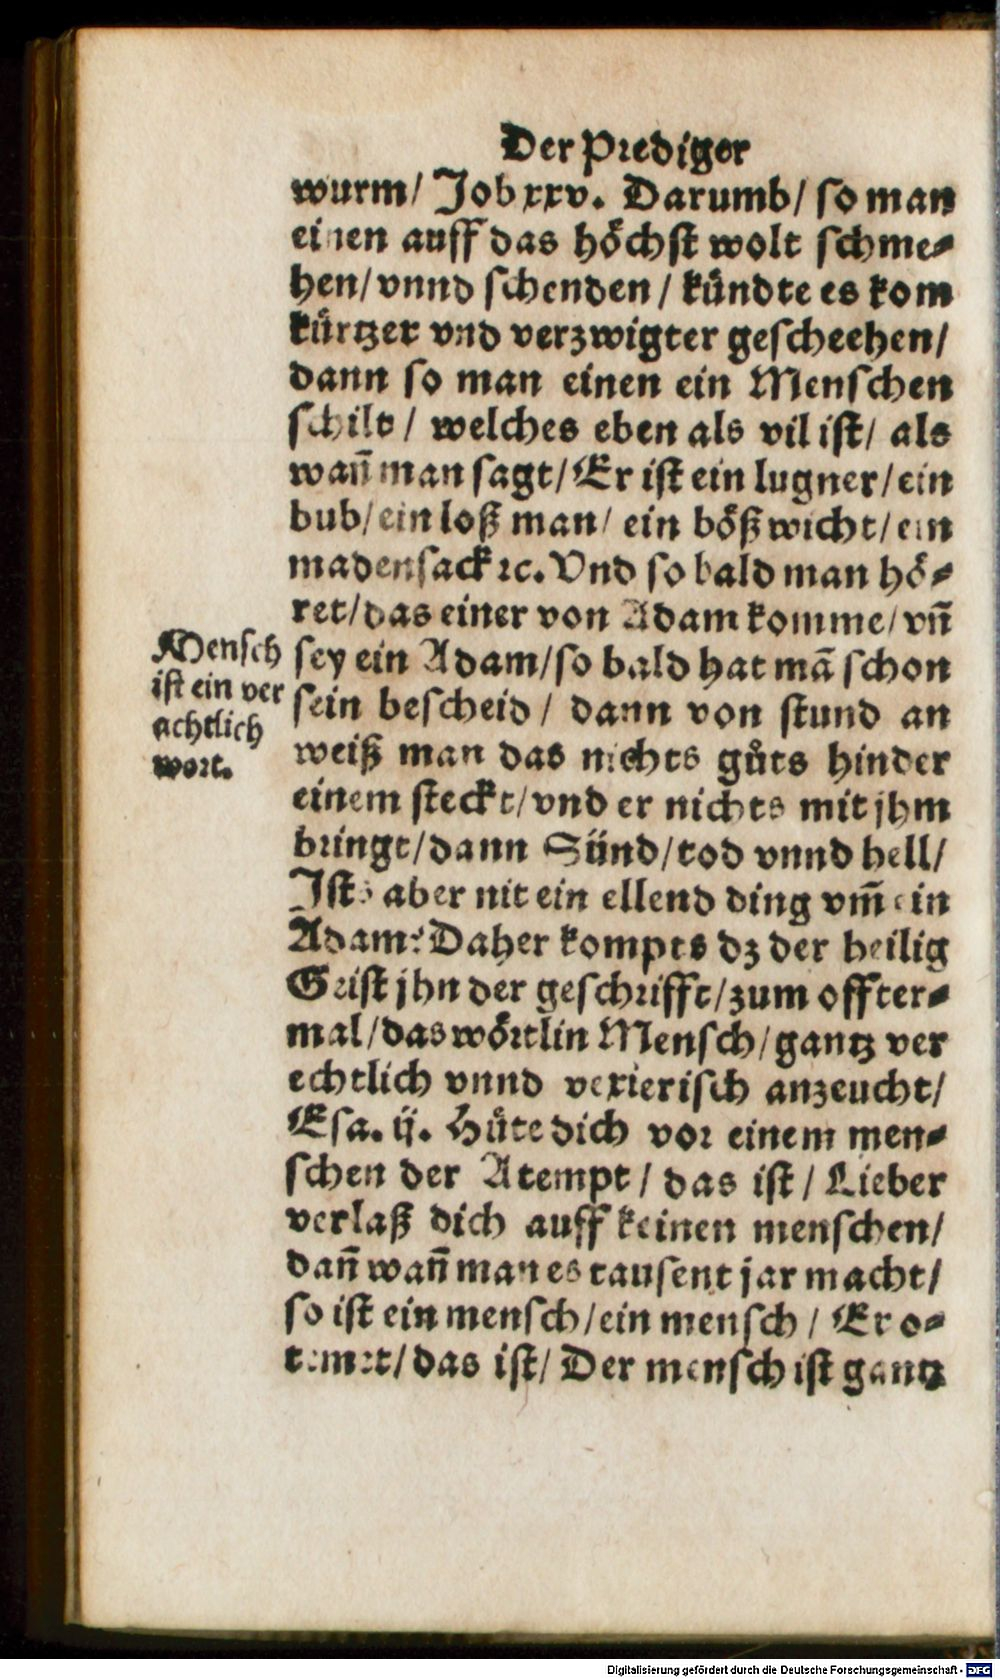 Der Prediger
wurm/ Job xxv. Darumb/ so man
einen auff das höchst wolt schme-
hen/ vnnd schenden / kündte es kom
kürtzer vnd verzwigter gescheehen/
dann so man einen ein Menschen
schilt / welches eben als vil ist/ als
wañ man sagt/ Er ist ein lugner/ ein
bub/ ein loß man/ ein bößwicht/ ein
madensack ꝛc. Vnd so bald man hö-
ret/ das einer von Adam komme/ vñ
sey ein Adam/ so bald hat mã schon
sein bescheid / dann von stund an
weiß man das nichts gůts hinder
einem steckt/ vnd er nichts mit jhm
bringt/ dann Sünd/ tod vnnd hell/
Ists aber nit ein ellend ding vm̃ ein
Adam? Daher kompts dz der heilig
Geist jhn der geschrifft/ zum offter-
mal/ das wörtlin Mensch/ gantz ver
echtlich vnnd vexierisch anzeucht/
Esa. ij. Hüte dich vor einem men-
schen der Atempt / das ist / Lieber
verlaß dich auff keinen menschen/
dañ wañ man es tausent jar macht/
so ist ein mensch/ ein mensch / Er o-
temet/ das ist/ Der mensch ist gantz
Mensch
ist ein ver
achtlich
wort.
Digitalisierung gefördert durch die Deutsche Forschungsgemeinschaft - DFG